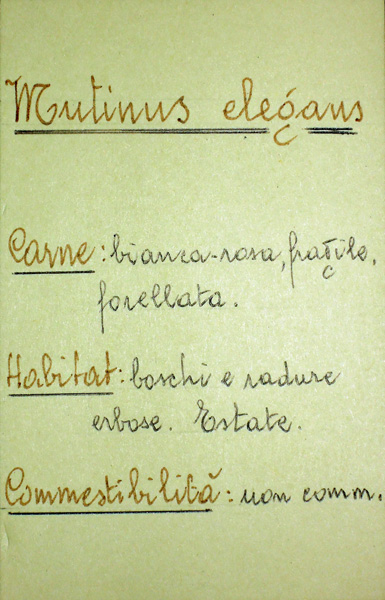 Mutinus elegans
Carne: bianca-rosa, fragile,
forellata.
Habitat: boschi e radure
erbose. Estate.
Commestibilità: non comm.